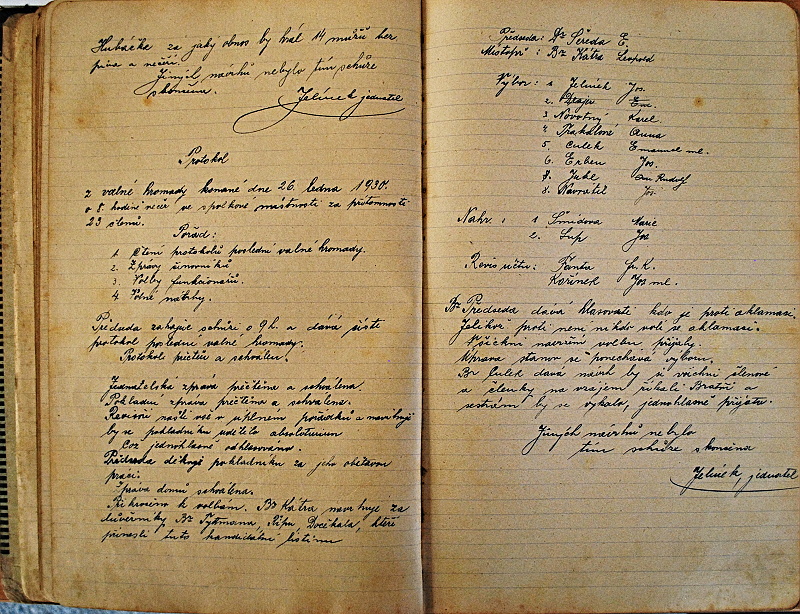 Hubáčka za jaký obnos by hrál 14 mužů bez
piva a večeře.
Jiných návrhů nebylo tím schůze
skončena.
Jelínek jednatel
Protokol
z valné hromady konané dne 26. ledna 1930.
o 8. hodině večer ve spolkové místnosti za přítomnosti
23 členů.
Pořád:
1. Čtení protokolů poslední valné hromady.
2. Zprávy činovníků
3. Volby funkcionářů.
4. Volné návrhy.
Předseda zahájil schůzi o 9 h. a dává čísti
protokol poslední valné hromady.
Protokol přečten a schválen.
Jednatelská zpráva přečtena a schválena.
Pokladní zpráva přečtena a schválena.
Revisoři našli vše v úplném pořádku a navrhují
by se pokladníku udělilo absolutorium
Což jednohlasně odhlasováno.
Předseda děkuje pokladníku za jeho obětavou
práci.
Zpráva domů schválena.
Přikročeno k volbám. Br Kátra navrhuje za
důvěrníky Br Tykmana, Pípu Dočekala, kteří
přinesli tuto kandidátní listinu
Předseda: Br Středa E.
Místopř: Br Kátra Leopold
Výbor: 1 Jelínek Jos.
2. Em.
3 Novotný Karel.
4 Anna
5. Culek Emanuel ml.
6. Erben Jos.
7. Rudolf
8. Navrátil Jos
Nahr: 1 Šmídova Marie
2. Sup Jos
Revis účtů: Fanta Fr. K.
Kořínek Jos ml.
Br Předseda dává hlasovati kdo je proti aklamaci.
Jelikož proti není nikdo volí se aklamací.
Všichni navržení volbu přijali.
Úprava stanov se ponechává výboru.
Br Culek dává návrh by si všichni členové
a členky na vzájem říkali Bratře a
sestrám by se vykalo, jednohlasně přijato.
Jiných návrhů nebylo
tím schůze skončena
Jelínek, jednatel